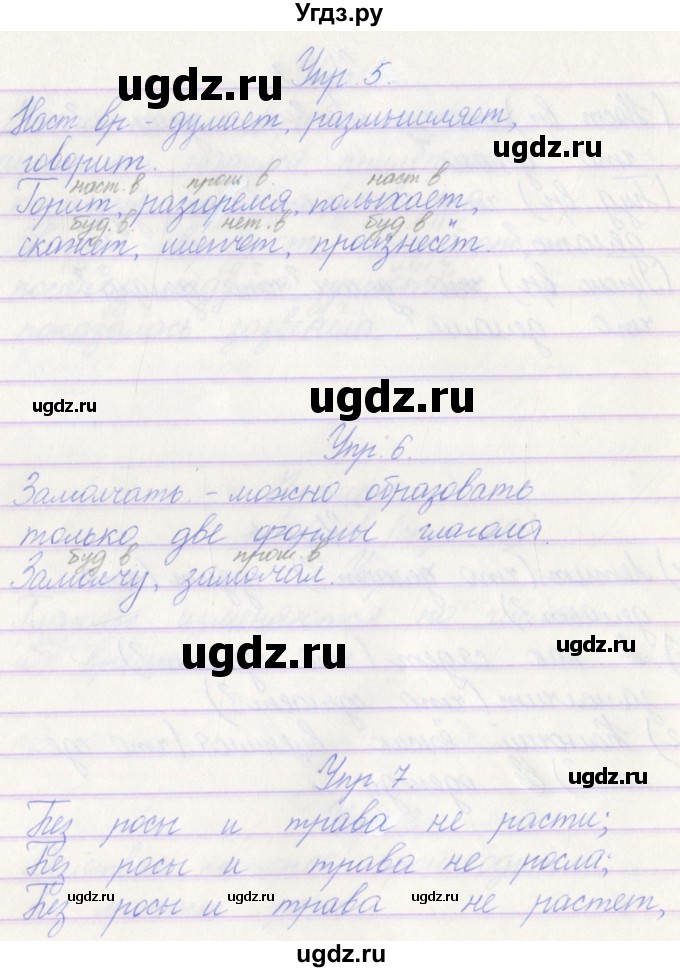 Угдз.ру
Упр. 5.
ugdz.ru
Наст. вр - думает, размышляет,
говорит.
ugdz.ru
наст. в прош в. наст в
Горит, разгорелся, полыхает,
буд. в нет. в буд в
скажет, шепчет, произнесёт.
ugdz.ru
ugdz.ru
Упр. 6.
Замолчать - можно образовать
только две формы глагола.
буд в прош. в
Замолчу, замолчал.
ugdz.ru
ugdz.ru
Упр 7
ugdz.ru
Без росы и трава не расти;
Без росы и трава не росла;
ugdz.ru ugdz.ru ugdz.ru ugdz.ru
Без росы и трава не растет,
ugdz.ru